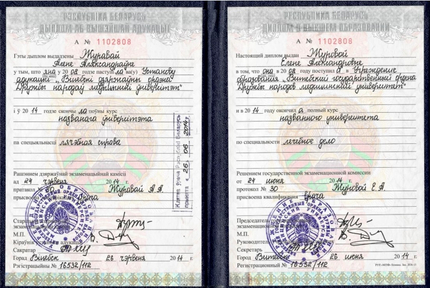 РЭСПУБЛІКА БЕЛАРУСЬ
А № 1102808
Гэты дыплом выдадзены Журавой
Алене Аляксандраўне
у тым, што яна ў 2008 годзе паступіла ва Установу
адукацыі "Віцебскі дзяржаўны ордэна
Дружбы народаў медыцынскі ўніверсітэт"
і ў 2014 годзе скончыла поўны курс
названага ўніверсітэта
па спецыяльнасці лячэбная справа
Рашэннем дзяржаўнай экзаменацыйнай камісіі
ад 24 чэрвеня 2014
Журавой А. А.
М.П.
Рэктар
Сакратар
Горад Віцебск 26 чэрвеня 2014 г.
Рэгістрацыйны № 16532/112
26.06.2014г.
РЕСПУБЛИКА БЕЛАРУСЬ
А № 1102808
Настоящий диплом выдан Журовой
Елене Александровне
в том, что она в 2008 году поступила в Учреждение
образования "Витебский государственный ордена
Дружбы народов медицинский университет"
и в 2014 году окончила полный курс
названного университета
по специальности лечебное дело
Решением государственной экзаменационной комиссии
от 24 июня 2014
протокол № 30 Журовой Е. А.
присвоена квалификация врача
Председатель
М.П.
Руководитель
Секретарь
Город Витебск 26 июня 2014 г.
Регистрационный № 16532/112